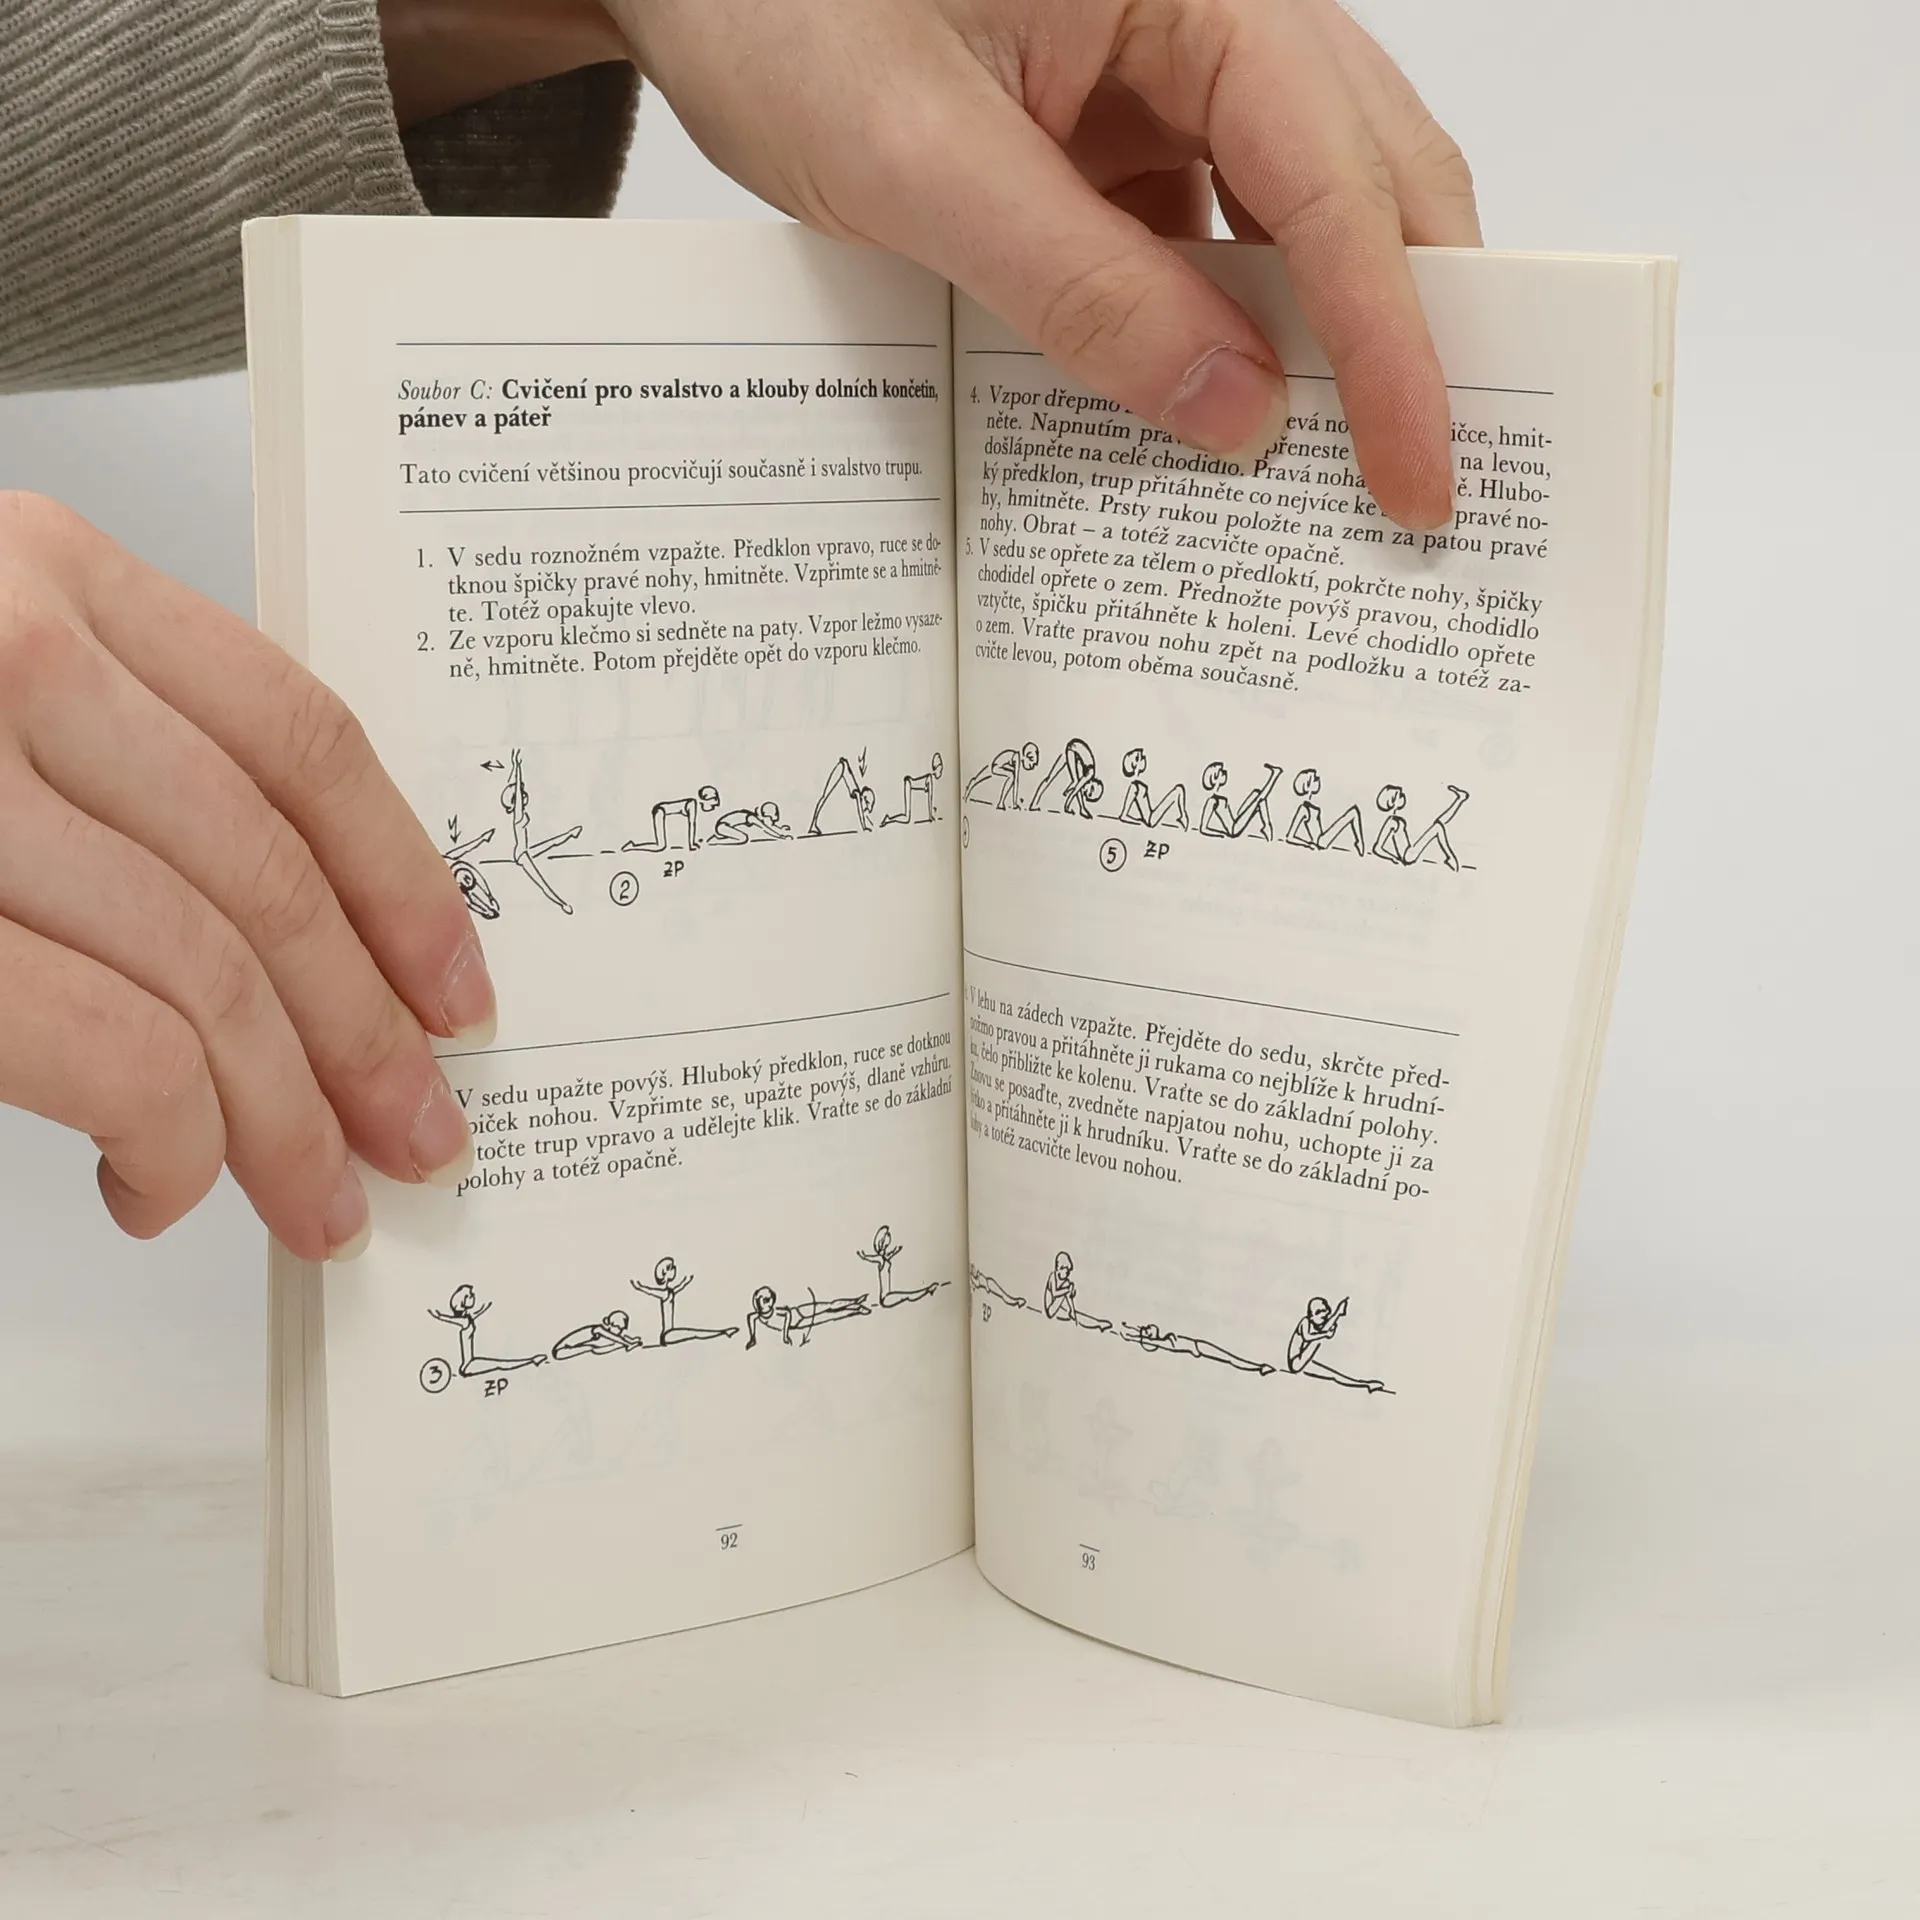 Soubor C: Cvičení pro svalstvo a klouby dolních končetin,
pánev a páteř
Tato cvičení většinou procvičují současně i svalstvo trupu.
1. V sedu roznožném vzpažte. Předklon vpravo, ruce se do-
tknou špičky pravé nohy, hmitněte. Vzpřimte se a hmitně-
te. Totéž opakujte vlevo.
2. Ze vzporu klečmo si sedněte na paty. Vzpor ležmo vysaze-
ně, hmitněte. Potom přejděte opět do vzporu klečmo.
2 ZP
V sedu upažte povýš. Hluboký předklon, ruce se dotknou
piček nohou. Vzpřimte se, upažte povýš, dlaně vzhůru.
točte trup vpravo a udělejte klik. Vraťte se do základní
polohy a totéž opačně.
3 ZP
92
4. Vzpor dřepmo evá no ičce, hmit-
něte. Napnutím přeneste na levou,
došlápněte na celé chodidlo. Pravá noha ě. Hlubo-
ký předklon, trup přitáhněte co nejvíce ke pravé no-
hy, hmitněte. Prsty rukou položte na zem za patou pravé
nohy. Obrat – a totéž zacvičte opačně.
5. V sedu se opřete za tělem o předloktí, pokrčte nohy, špičky
chodidel opřete o zem. Přednožte povýš pravou, chodidlo
vztyčte, špičku přitáhněte k holeni. Levé chodidlo opřete
o zem. Vraťte pravou nohu zpět na podložku a totéž za-
cvičte levou, potom oběma současně.
5 ZP
V lehu na zádech vzpažte. Přejděte do sedu, skrčte před-
nožmo pravou a přitáhněte ji rukama co nejblíže k hrudní-
ku, čelo přibližte ke kolenu. Vraťte se do základní polohy.
Znovu se posaďte, zvedněte napjatou nohu, uchopte ji za
lýtko a přitáhněte ji k hrudníku. Vraťte se do základní po-
lohy a totéž zacvičte levou nohou.
ZP
93